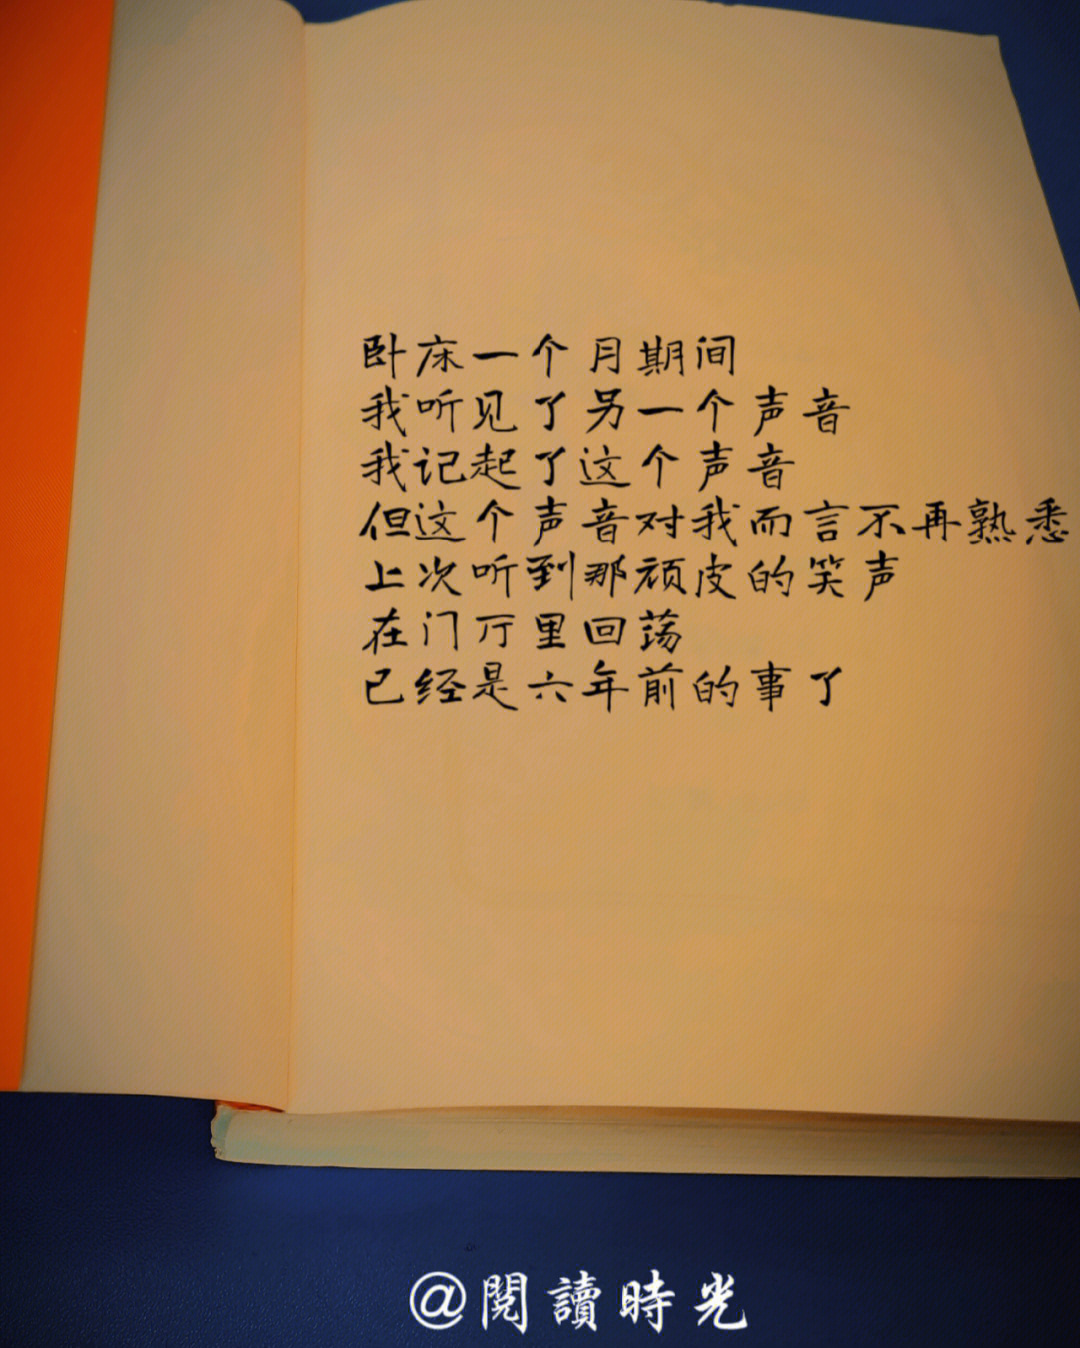 卧床一个月期间
我听见了另一个声音
我记起了这个声音
但这个声音对我而言不再熟悉
上次听到那顽皮的笑声
在门厅里回荡
已经是六年前的事了
@閱讀時光